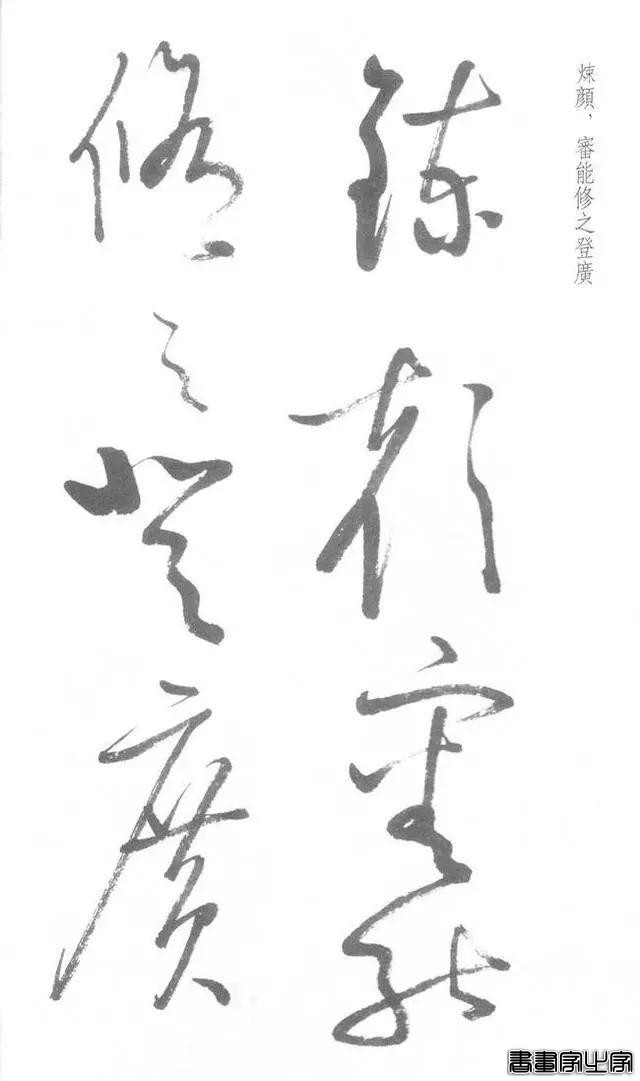 煉顔,審能修之登廣
鍊顔審能
脩之登廣
書畫家之家